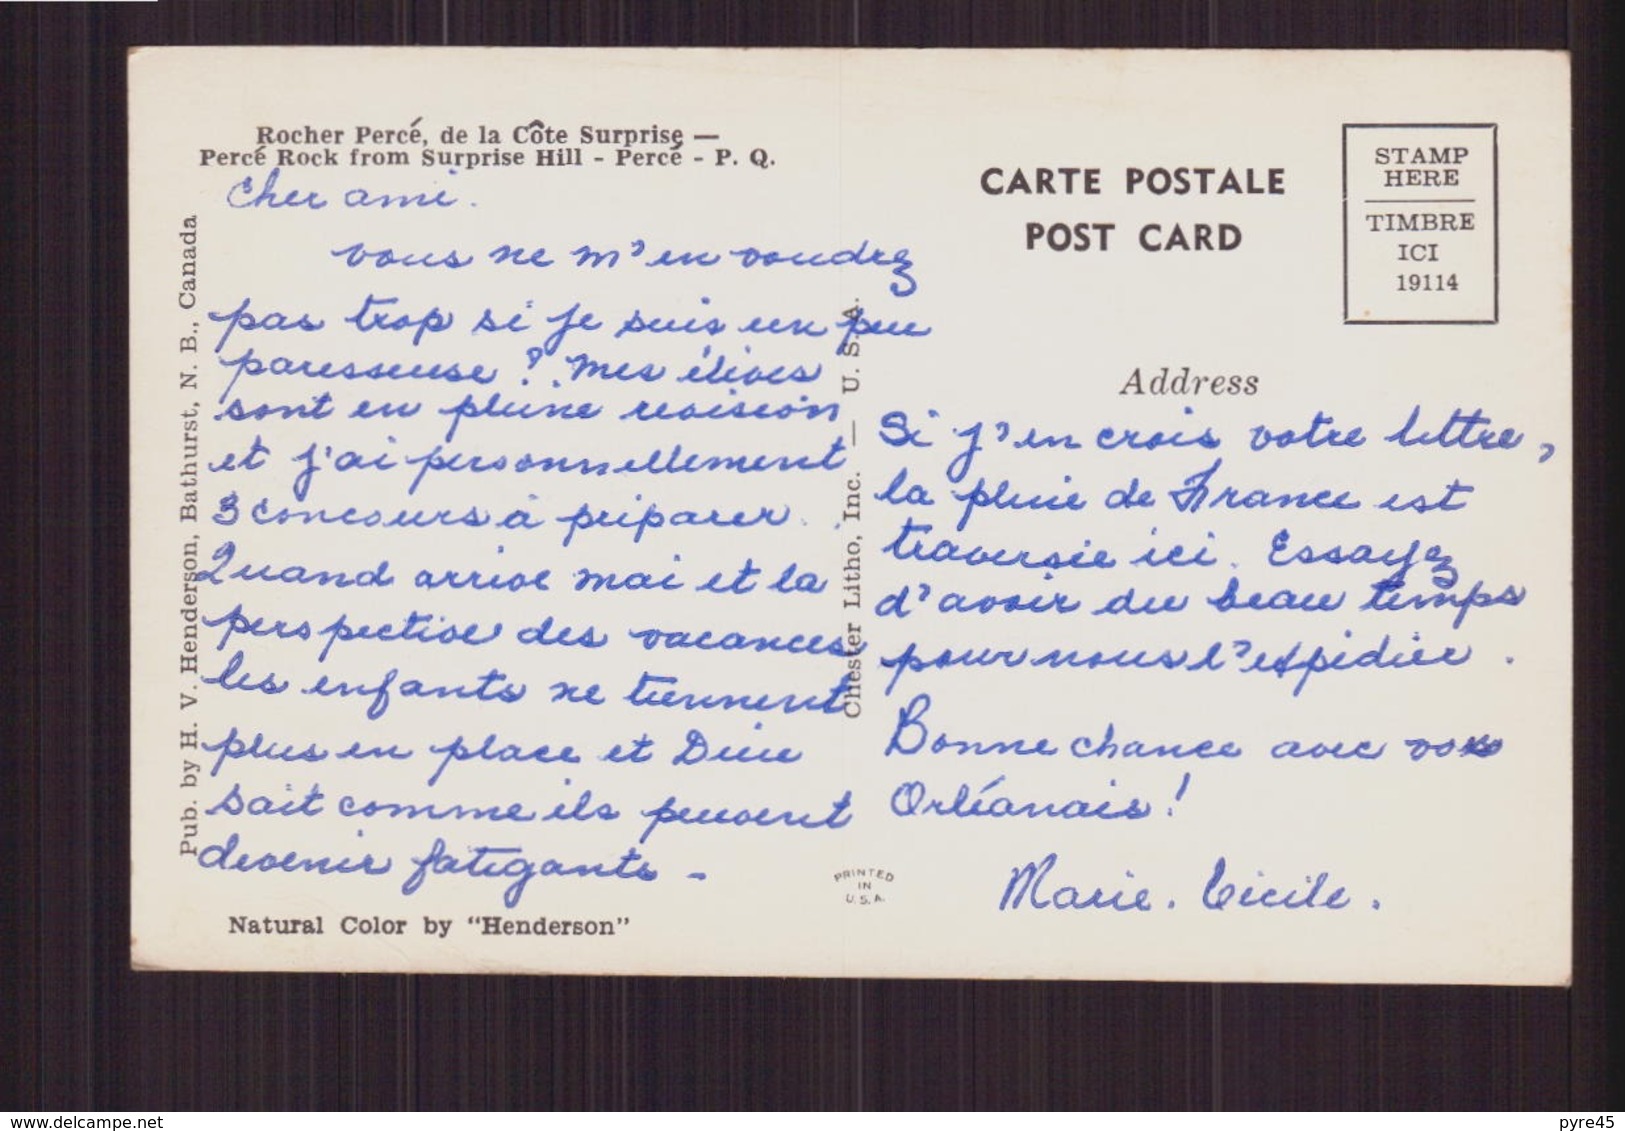 Rocher Percé, de la Côte Surprise —
Percé Rock from Surprise Hill - Percé - P. Q.
Cher ami.
vous ne m'en voudrez
pas trop si je suis un peu
paresseuse ?. Mes élèves
sont en pleine revision
et j'ai personnellement
3 concours à préparer.
Quand arrive mai et la
perspective des vacances
les enfants ne tiennent
plus en place et Dieu
sait comme ils peuvent
devenir fatigants -
Natural Color by "Henderson"
Pub. by H. V. Henderson, Bathurst, N. B., Canada
Chester Litho, Inc. — U. S. A.
PRINTED
IN
U.S.A.
CARTE POSTALE
POST CARD
STAMP
HERE
TIMBRE
ICI
19114
Address
Si j'en crois votre lettre,
la pluie de France est
traversée ici. Essayez
d'avoir du beau temps
pour nous l'expédier.
Bonne chance avec vos
Orléanais!
Marie. Cécile.
www.delcampe.net
pyre45